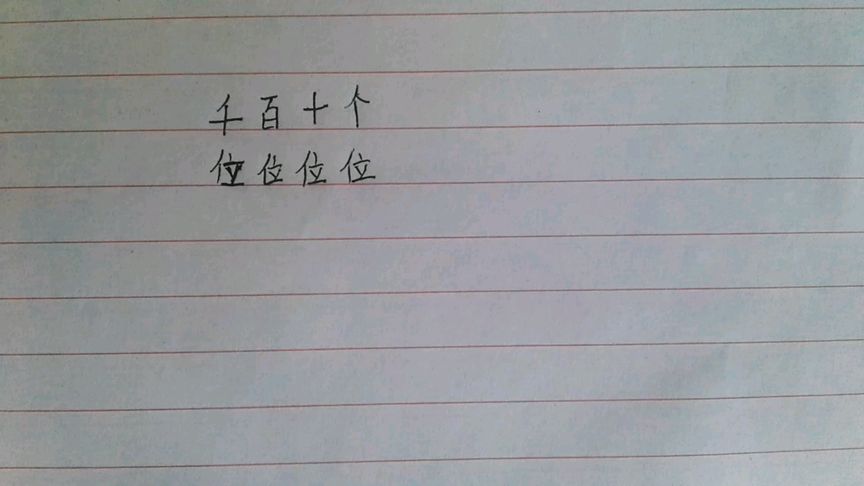 千百十个
位位位位